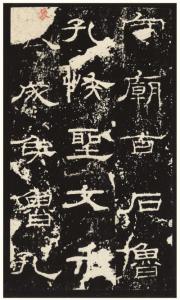 守廟百石魯
孔恢聖文千
成侯魯孔